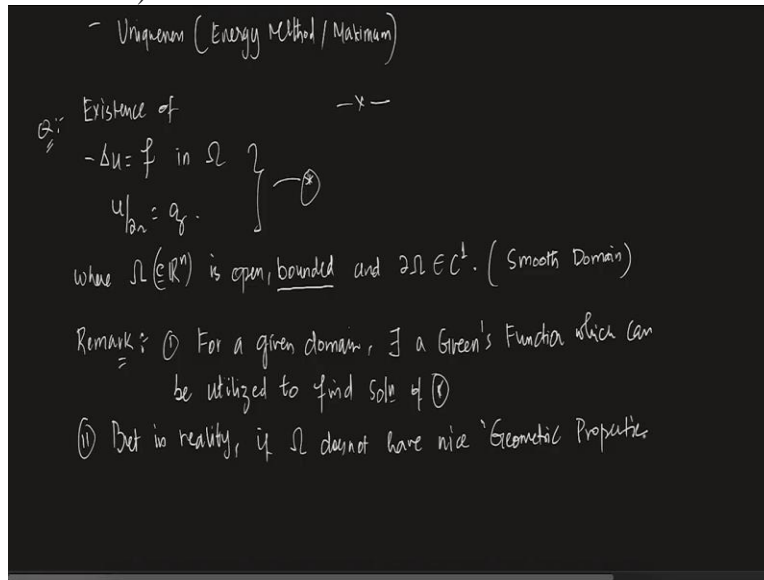 - Uniqueness (Energy Method / Maximum)
Q:- Existence of —x—
-Δu = f in Ω } — ⊛
u|∂Ω = g.
where Ω (⊆ ℝⁿ) is open, bounded and ∂Ω ∈ C¹. (Smooth Domain)
Remark :- ① For a given domain, ∃ a Green's Function which can
be utilized to find solⁿ of ⊛
(ii) But in reality, if Ω doesnot have nice 'Geometric Properties